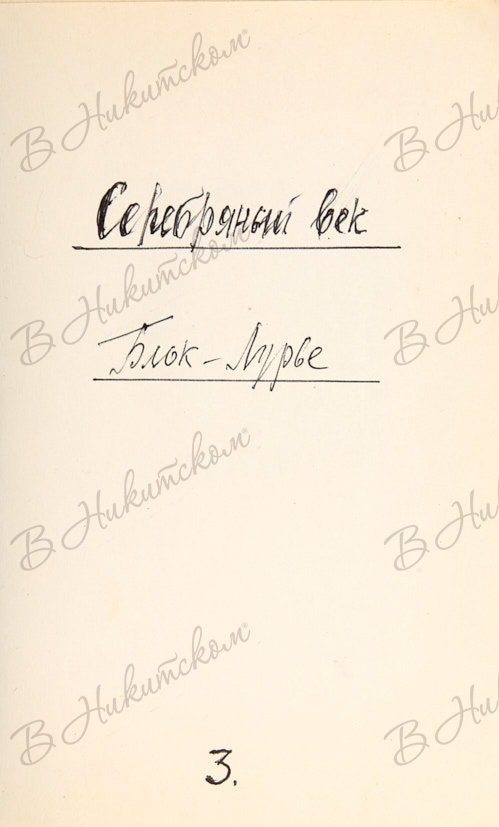 Серебряный век
Блок - Лурье
3.
В Никитском
В Никитском
В Никитском
В Никитском
В Ни
В Ни
В Ни
В Ни